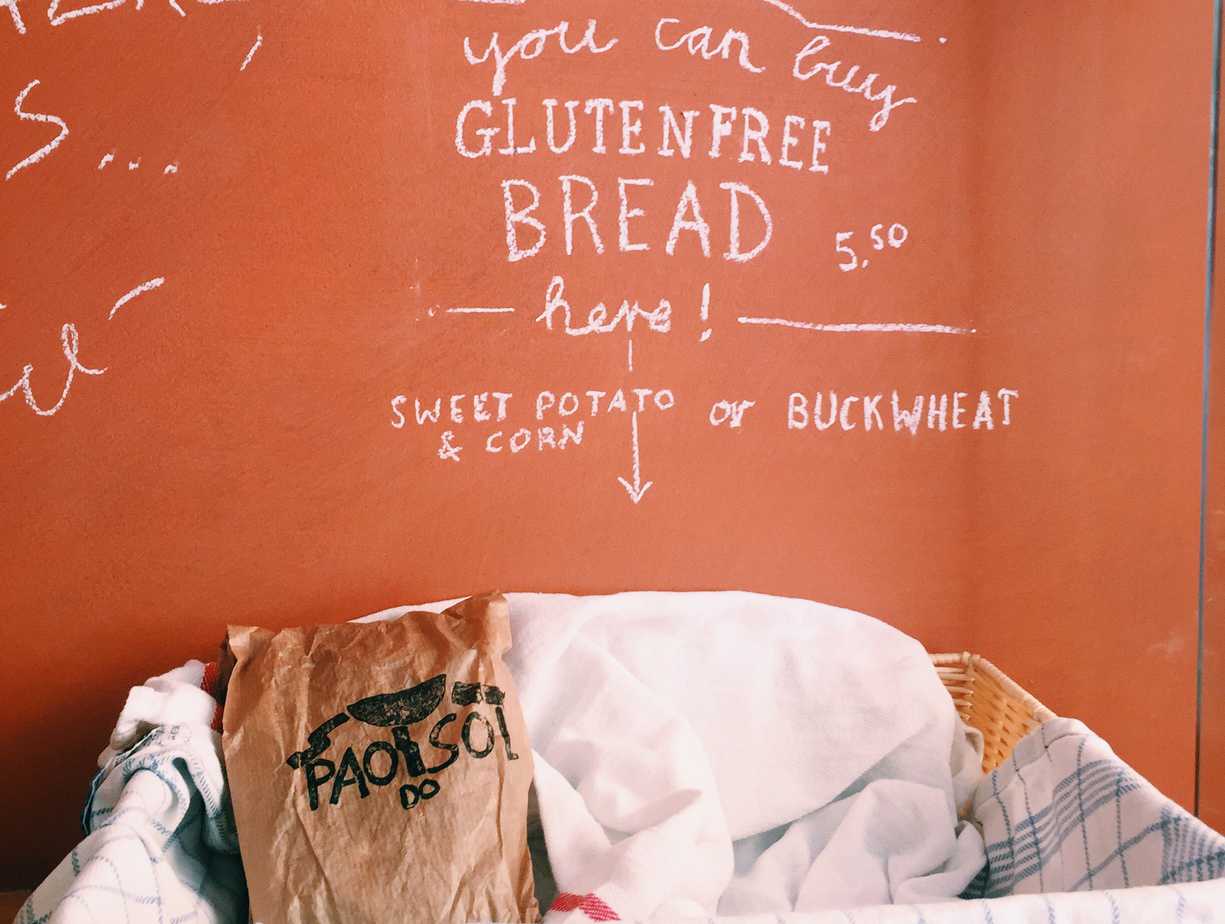 you can buy
GLUTENFREE
BREAD 5.50
here!
SWEET POTATO or BUCKWHEAT
& CORN
PAO SOL
DO